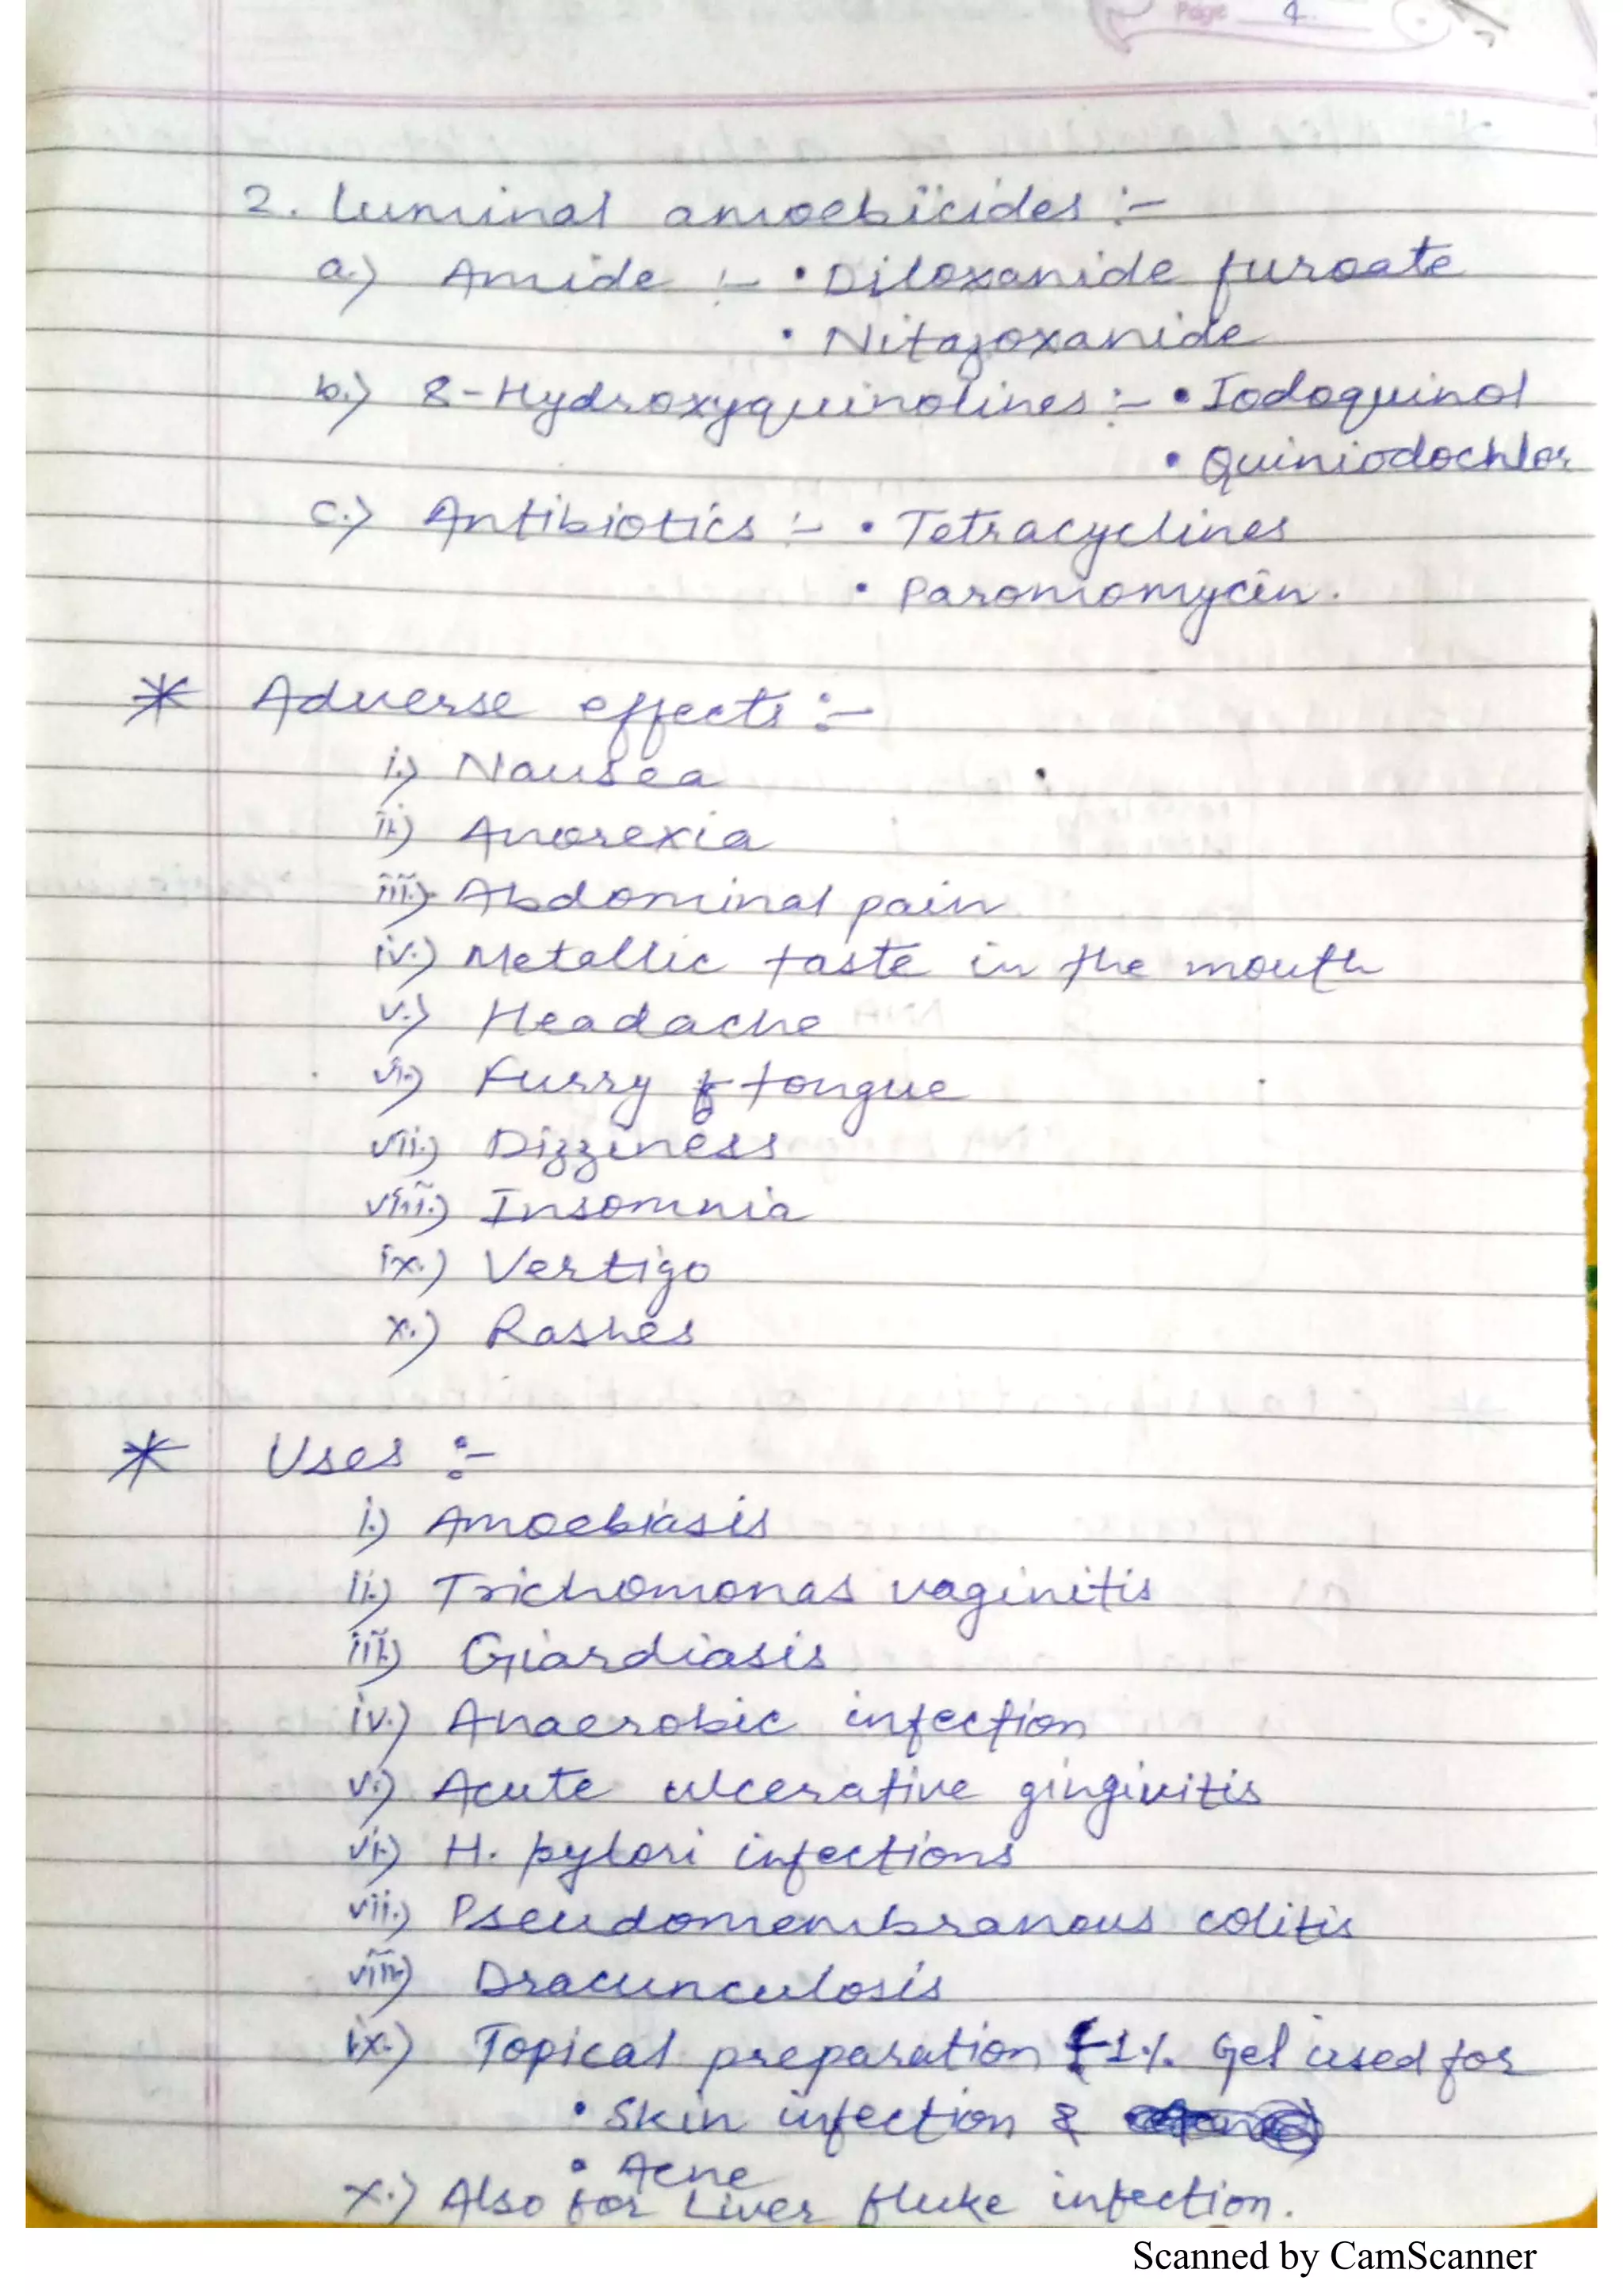 Page 4.
2. Luminal amoebicides :-
a.) Amide :- • Diloxanide furoate
• Nitazoxanide
b.) 8-Hydroxyquinolines :- • Iodoquinol
• Quiniodochlor
c.) Antibiotics :- • Tetracyclines
• Paromomycin.
* Adverse effects :-
i.) Nausea
ii.) Anorexia
iii.) Abdominal pain
iv.) Metallic taste in the mouth
v.) Headache
vi.) Furry tongue
vii.) Dizziness
viii.) Insomnia
ix.) Vertigo
x.) Rashes
* Uses :-
i.) Amoebiasis
ii.) Trichomonas vaginitis
iii.) Giardiasis
iv.) Anaerobic infection
v.) Acute ulcerative gingivitis
vi.) H. pylori infections
vii.) Pseudomembranous colitis
viii.) Dracunculosis
ix.) Topical preparation -1% Gel used for
• Skin infection &
• Acne
x.) Also for Liver fluke infection.
Scanned by CamScanner